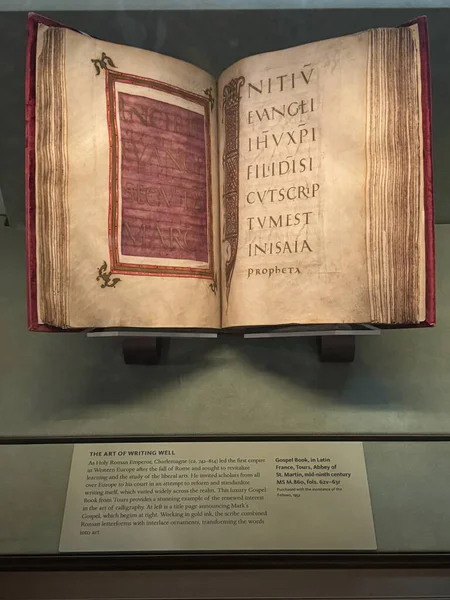 INCIP
EVAN
MARC
INITIV̄
EVANGLI
IH̄V XP̄I
FILI DĪ SI
CVT SCRIP
TVM EST
IN ISAIA
propheta
THE ART OF WRITING WELL
As Holy Roman Emperor, Charlemagne (ca. 742–814) led the first empire
in Western Europe after the fall of Rome and sought to revitalize
learning and the study of the liberal arts. He invited scholars from all
over Europe to his court in an attempt to reform and standardize
writing itself, which varied widely across the realm. This luxury Gospel
Book from Tours provides a stunning example of the renewed interest
in the art of calligraphy. At left is a title page announcing Mark's
Gospel, which begins at right. Working in gold ink, the scribe combined
Roman letterforms with interlace ornaments, transforming the words
into art.
Gospel Book, in Latin
France, Tours, Abbey of
St. Martin, mid-ninth century
MS M.860, fols. 62v–63r
Purchased with the assistance of the
Fellows, 1952